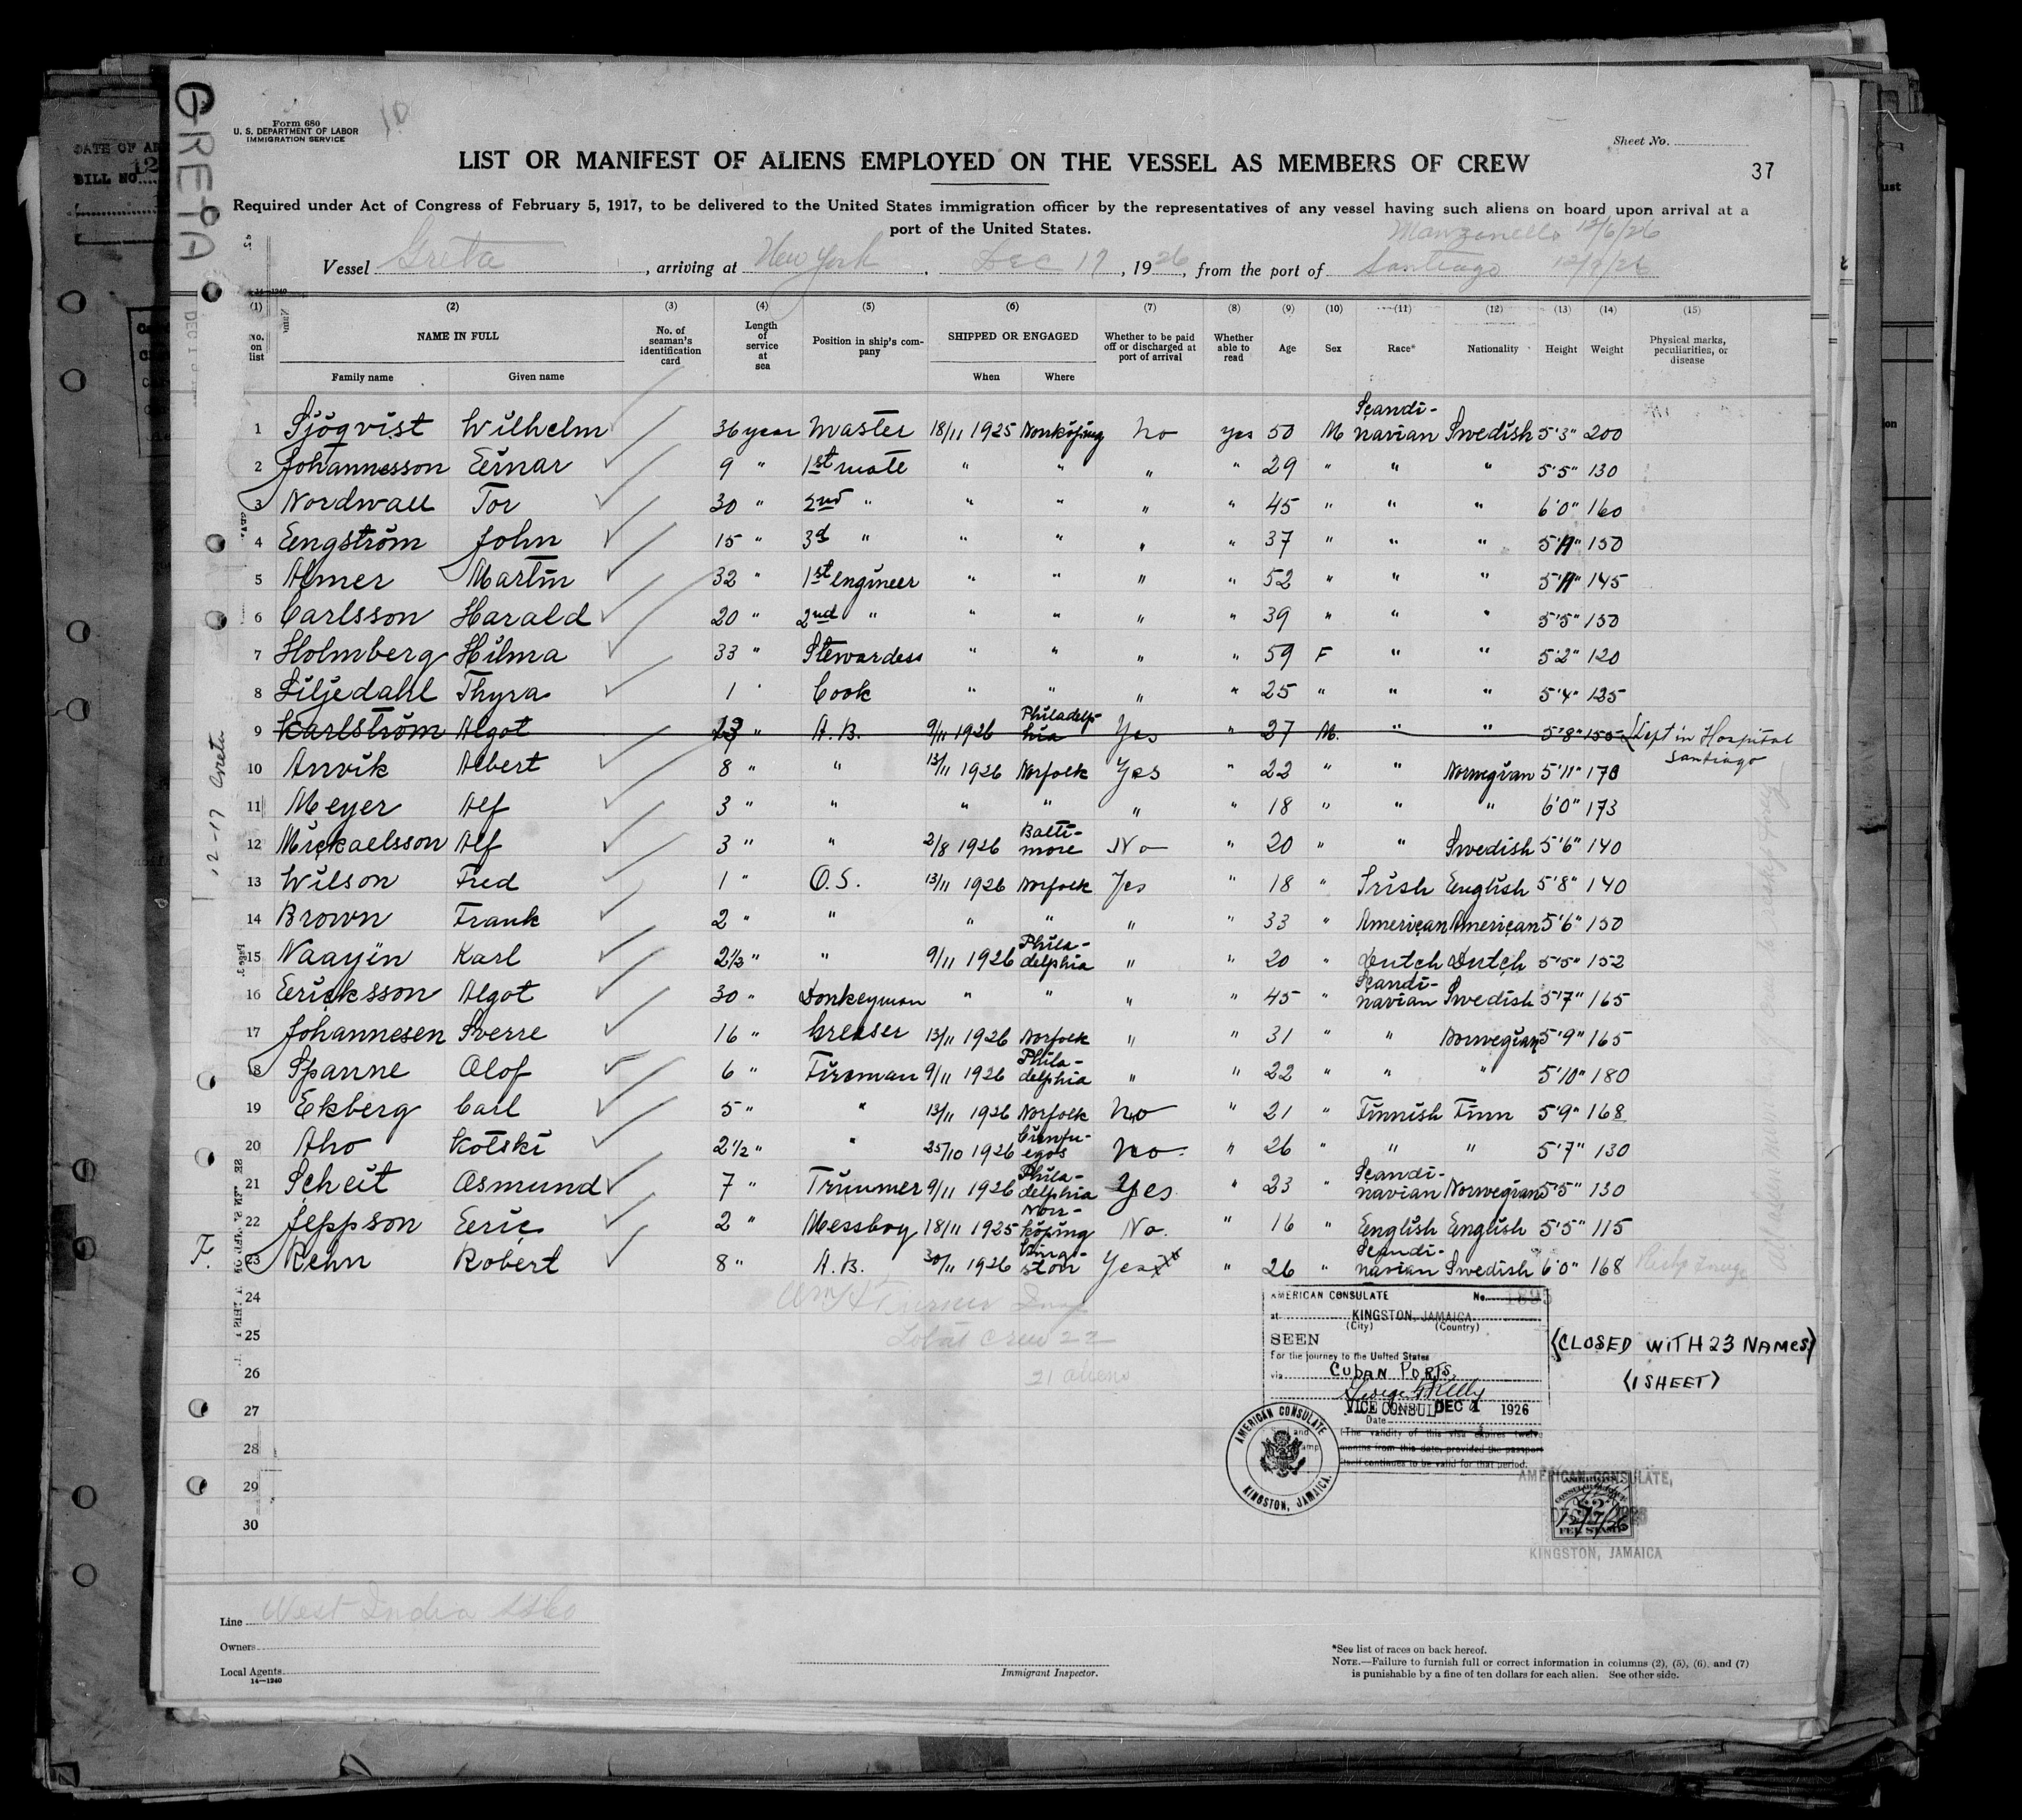 GRETA
10
Form 680
U. S. DEPARTMENT OF LABOR
IMMIGRATION SERVICE
Sheet No.
LIST OR MANIFEST OF ALIENS EMPLOYED ON THE VESSEL AS MEMBERS OF CREW
37
Required under Act of Congress of February 5, 1917, to be delivered to the United States immigration officer by the representatives of any vessel having such aliens on board upon arrival at a
port of the United States.
Manzanello 12/6/26
Vessel Greta, arriving at New York, Dec 17, 1926, from the port of Santiago 12/9/26
(1) (2) (3) (4) (5) (6) (7) (8) (9) (10) (11) (12) (13) (14) (15)
No. on list NAME IN FULL Family name Given name No. of seaman's identification card Length of service at sea Position in ship's company SHIPPED OR ENGAGED When Where Whether to be paid off or discharged at port of arrival Whether able to read Age Sex Race* Nationality Height Weight Physical marks, peculiarities, or disease
1 Sjöqvist Wilhelm 36 year Master 18/11 1925 Norrköping No yes 50 M Scandi-navian Swedish 5'3" 200
2 Johannesson Einar 9 " 1st mate " " " " 29 " " " 5'5" 130
3 Nordwall Tor 30 " 2nd " " " " " 45 " " " 6'0" 160
4 Engström John 15 " 3d " " " " " 37 " " " 5'11" 150
5 Almer Martin 32 " 1st engineer " " " " 52 " " " 5'11" 145
6 Carlsson Harald 20 " 2nd " " " " " 39 " " " 5'5" 150
7 Holmberg Hilma 33 " Stewardess " " " " 59 F " " 5'2" 120
8 Liljedahl Thyra 1 " Cook " " " " 25 " " " 5'4" 125
9 Karlström Algot 13 " A.B. 9/11 1926 Philadelp-hia Yes " 27 M. " " 5'8" 150 Left in Hospital Santiago
10 Anvik Albert 8 " " 13/11 1926 Norfolk Yes " 22 " " Norwegian 5'11" 170
11 Meyer Alf 3 " " " " " " 18 " " " 6'0" 173
12 Mickaelsson Alf 3 " " 2/8 1926 Balti-more No " 20 " " Swedish 5'6" 140
13 Wilson Fred 1 " O.S. 13/11 1926 Norfolk Yes " 18 " Irish English 5'8" 140
14 Brown Frank 2 " " " " " " 33 " American American 5'6" 150
15 Naayen Karl 2 1/2 " " 9/11 1926 Phila-delphia " " 20 " Dutch Dutch 5'5" 152
16 Ericksson Algot 30 " Donkeyman " " " " 45 " Scandi-navian Swedish 5'7" 165
17 Johannesen Sverre 16 " Greaser 13/11 1926 Norfolk " " 31 " " Norwegian 5'9" 165
18 Spanne Olof 6 " Fireman 9/11 1926 Phila-delphia " " 22 " " " 5'10" 180
19 Ekberg Carl 5 " " 13/11 1926 Norfolk No " 21 " Finnish Finn 5'9" 168
20 Aho Kotski 2 1/2 " " 25/10 1926 Cienfu-egos No " 26 " " " 5'7" 130
21 Scheit Asmund 7 " Trimmer 9/11 1926 Phila-delphia Yes " 23 " Scandi-navian Norwegian 5'5" 130
22 Jeppson Eric 2 " Messboy 18/11 1925 Norr-köping No. " 16 " English English 5'5" 115
F. 23 Rehn Robert 8 " A.B. 30/11 1926 Kings-ston Yes xx " 26 " Scandi-navian Swedish 6'0" 168
24
25
26
27
28
29
30
12-17 Greta
Wm H Turner Insp
Total crew 22
21 aliens
AMERICAN CONSULATE No. 1895
at KINGSTON, JAMAICA
(City) (Country)
SEEN
For the journey to the United States
via CUBAN PORTS.
VICE CONSUL DEC 1 1926
Date
The validity of this visa expires twelve
months from this date, provided the passport
itself continues to be valid for that period.
(CLOSED WITH 23 NAMES)
(1 SHEET)
AMERICAN CONSULATE
KINGSTON, JAMAICA.
AMERICAN CONSULATE,
$2
FEE STAMP
KINGSTON, JAMAICA
Line West India SS Co
Owners
Local Agents
14—1240
Immigrant Inspector.
*See list of races on back hereof.
NOTE.—Failure to furnish full or correct information in columns (2), (5), (6), and (7)
is punishable by a fine of ten dollars for each alien. See other side.